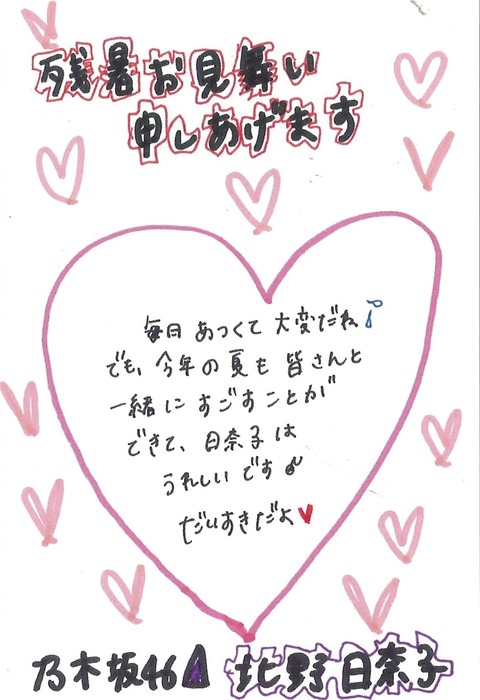 残暑お見舞い
申しあげます
毎日 あつくて 大変だね
でも、今年の夏も 皆さんと
一緒に すごすことが
できて、日奈子は
うれしいです
だいすきだよ♥
乃木坂46 北野日奈子